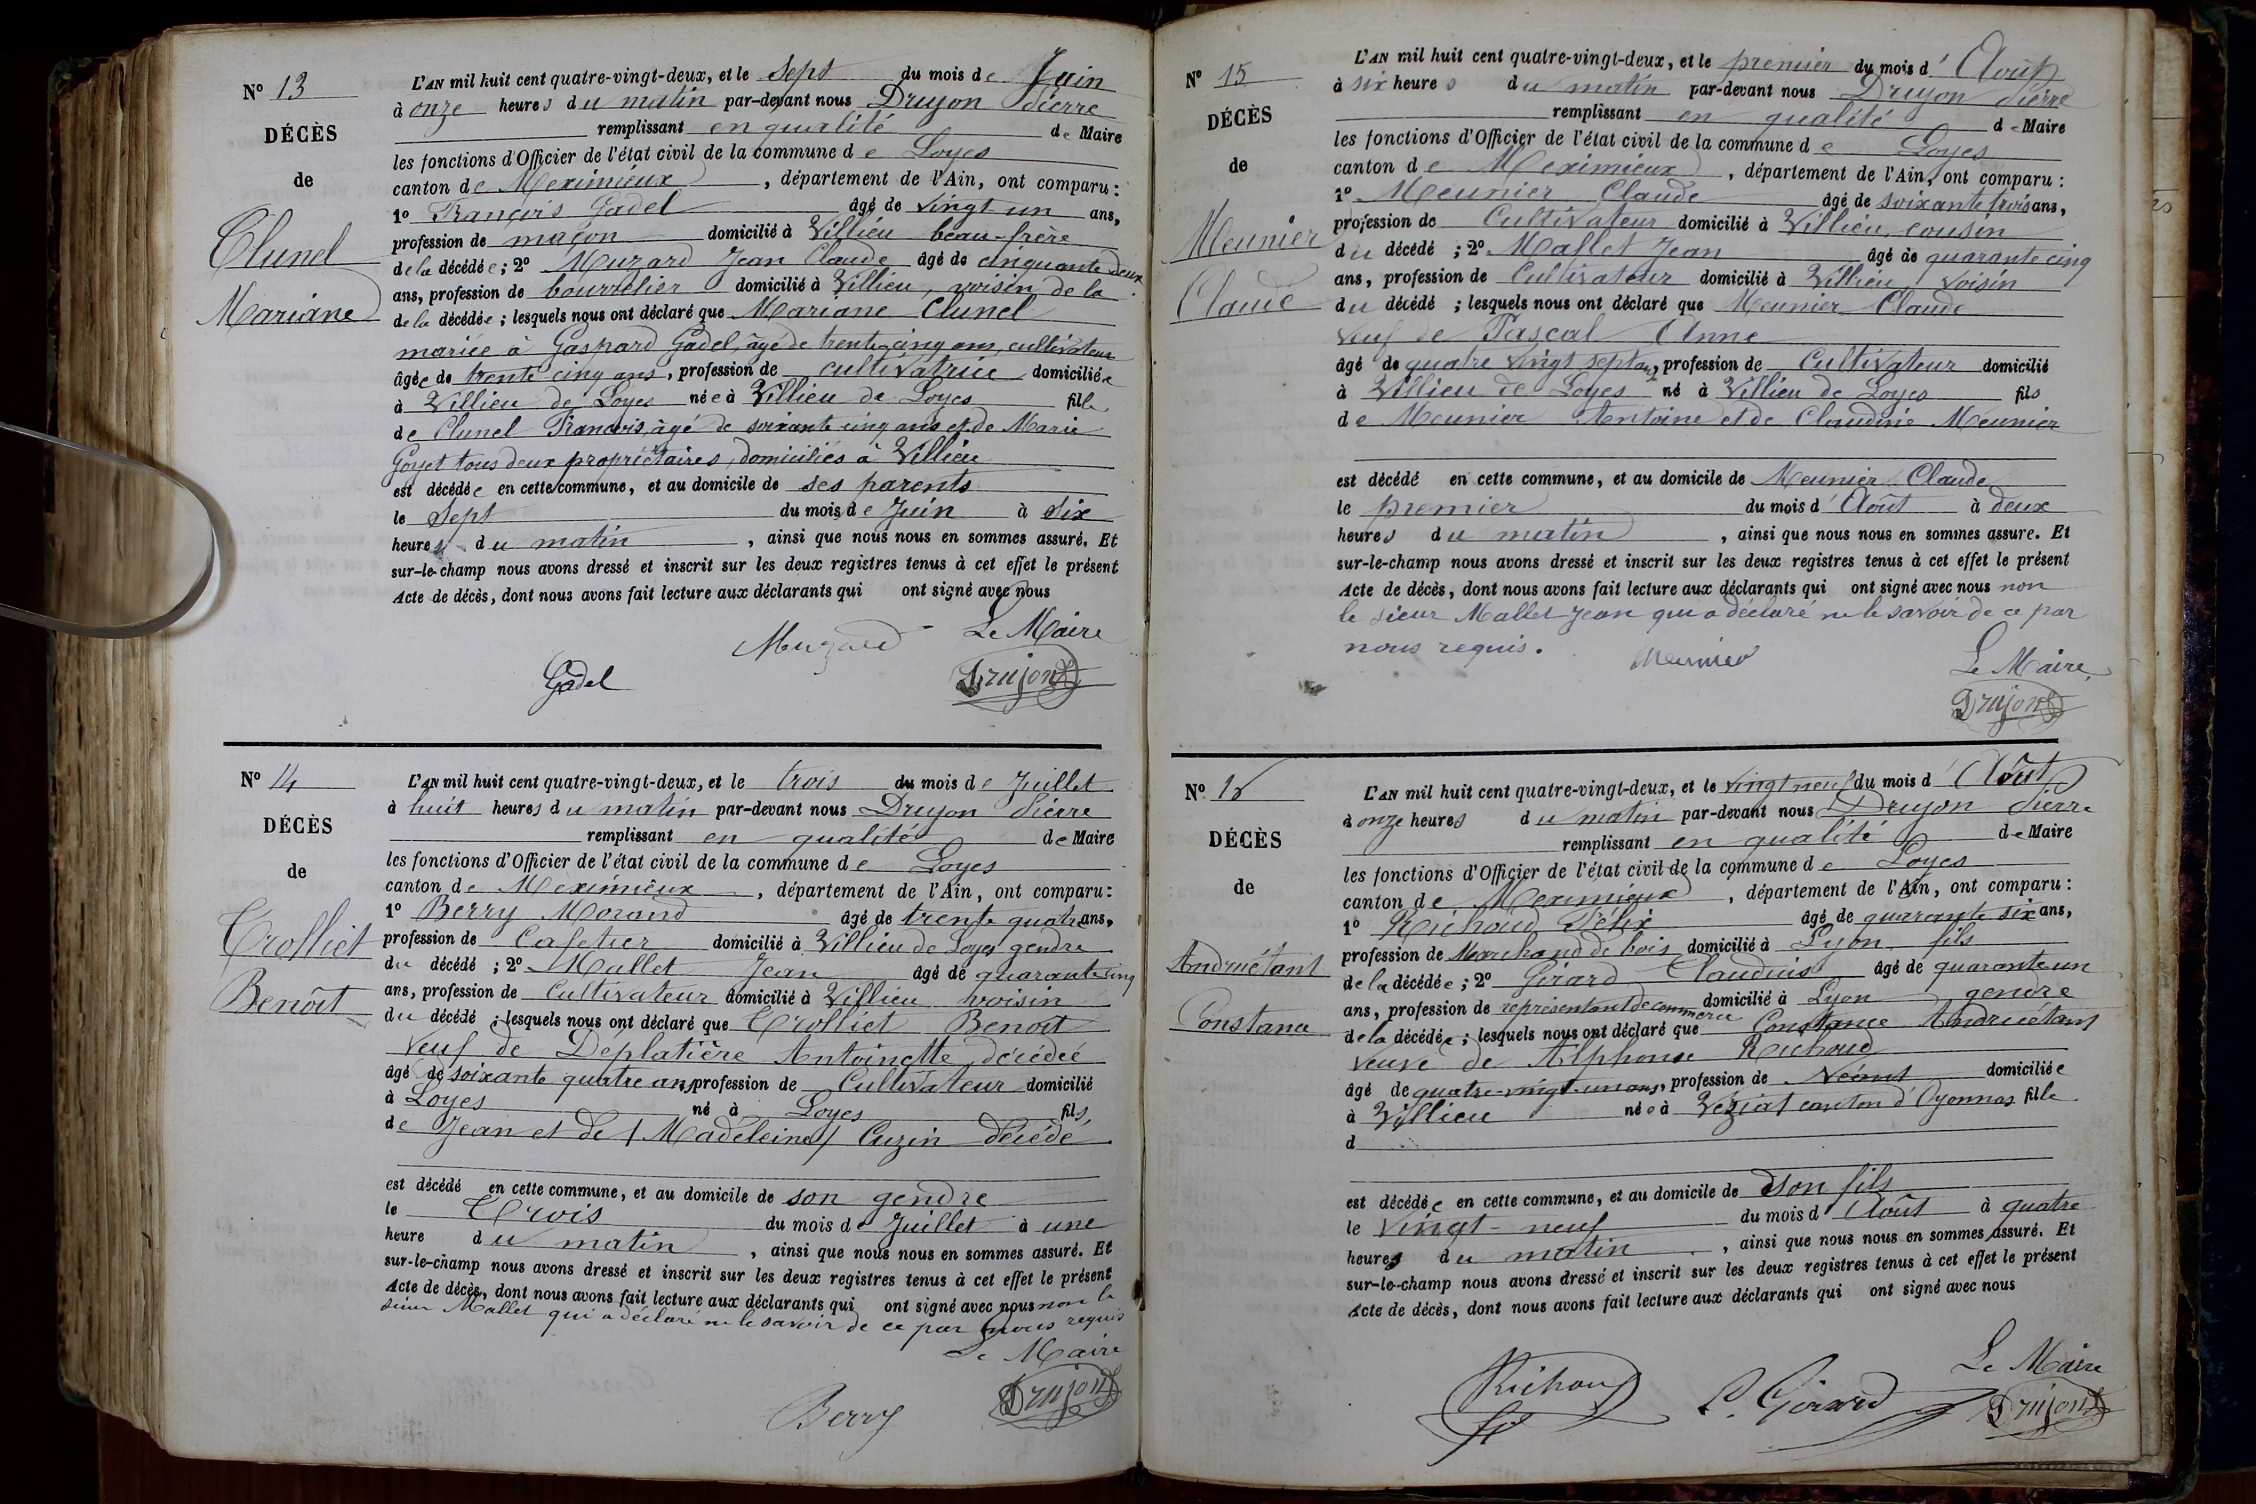 Nº 13
DÉCÈS
de
Clunel
Mariane
L'AN mil huit cent quatre-vingt-deux, et le sept du mois de Juin
à onze heures du matin par-devant nous Drujon Pierre
remplissant en qualité de Maire
les fonctions d'Officier de l'état civil de la commune de Loyes
canton de Meximieux, département de l'Ain, ont comparu:
1º François Gadel âgé de vingt-un ans,
profession de maçon domicilié à Villieu beau-frère
de la décédée; 2º Muzard Jean Claude âgé de cinquante deux
ans, profession de bourrelier domicilié à Villieu, voisin de la
de la décédée; lesquels nous ont déclaré que Mariane Clunel
mariée à Gaspard Gadel, âgé de trente cinq ans, cultivateur
âgée de trente cinq ans, profession de cultivatrice domiciliée
à Villieu de Loyes née à Villieu de Loyes fille
de Clunel François, âgé de soixante cinq ans et de Marie
Goyet tous deux propriétaires, domiciliés à Villieu
est décédée en cette commune, et au domicile de ses parents
le Sept du mois de Juin à six
heures du matin, ainsi que nous nous en sommes assuré. Et
sur-le-champ nous avons dressé et inscrit sur les deux registres tenus à cet effet le présent
Acte de décès, dont nous avons fait lecture aux déclarants qui ont signé avec nous
Muzard Le Maire
Gadel Drujon
Nº 14
DÉCÈS
de
Trolliet
Benoît
L'AN mil huit cent quatre-vingt-deux, et le trois du mois de Juillet
à huit heures du matin par-devant nous Drujon Pierre
remplissant en qualité de Maire
les fonctions d'Officier de l'état civil de la commune de Loyes
canton de Meximieux, département de l'Ain, ont comparu:
1º Berry Morand âgé de trente quatre ans,
profession de Cafetier domicilié à Villieu de Loyes gendre
du décédé; 2º Mallet Jean âgé de quarante cinq
ans, profession de Cultivateur domicilié à Villieu voisin
du décédé; lesquels nous ont déclaré que Trolliet Benoît
Veuf de Déplatière Antoinette, décédée
âgé de soixante quatre ans, profession de Cultivateur domicilié
à Loyes né à Loyes fils
de Jean et de (Madeleine) Cuzin décédé
est décédé en cette commune, et au domicile de son gendre
le Trois du mois de Juillet à une
heure du matin, ainsi que nous nous en sommes assuré. Et
sur-le-champ nous avons dressé et inscrit sur les deux registres tenus à cet effet le présent
Acte de décès, dont nous avons fait lecture aux déclarants qui ont signé avec nous non le
sieur Mallet qui a déclaré ne le savoir de ce par nous requis
Le Maire
Berry Drujon
Nº 15
DÉCÈS
de
Meunier
Claude
L'AN mil huit cent quatre-vingt-deux, et le premier du mois d'Août
à six heures du matin par-devant nous Drujon Pierre
remplissant en qualité de Maire
les fonctions d'Officier de l'état civil de la commune de Loyes
canton de Meximieux, département de l'Ain, ont comparu:
1º Meunier Claude âgé de soixante trois ans,
profession de Cultivateur domicilié à Villieu, cousin
du décédé; 2º Mallet Jean âgé de quarante cinq
ans, profession de Cultivateur domicilié à Villieu Voisin
du décédé; lesquels nous ont déclaré que Meunier Claude
Veuf de Pascal Anne
âgé de quatre vingt sept ans, profession de Cultivateur domicilié
à Villieu de Loyes né à Villieu de Loyes fils
de Meunier Antoine et de Claudine Meunier
est décédé en cette commune, et au domicile de Meunier Claude
le premier du mois d'Août à deux
heures du matin, ainsi que nous nous en sommes assuré. Et
sur-le-champ nous avons dressé et inscrit sur les deux registres tenus à cet effet le présent
Acte de décès, dont nous avons fait lecture aux déclarants qui ont signé avec nous non
le sieur Mallet Jean qui a déclaré ne le savoir de ce par
nous requis.
Meunier Le Maire
Drujon
Nº 16
DÉCÈS
de
Andruétant
Constance
L'AN mil huit cent quatre-vingt-deux, et le vingt neuf du mois d'Août
à onze heures du matin par-devant nous Drujon Pierre
remplissant en qualité de Maire
les fonctions d'Officier de l'état civil de la commune de Loyes
canton de Meximieux, département de l'Ain, ont comparu:
1º Richoud Félix âgé de quarante six ans,
profession de Marchand de bois domicilié à Lyon fils
de la décédée; 2º Girard Claudius âgé de quarante un
ans, profession de représentant de commerce domicilié à Lyon gendre
de la décédée; lesquels nous ont déclaré que Constance Andruétant
veuve de Alphonse Richoud
âgé de quatre-vingt-un ans, profession de Néant domiciliée
à Villieu née à Véziat canton d'Oyonnax fille
d
est décédée en cette commune, et au domicile de son fils
le vingt-neuf du mois d'Août à quatre
heures du matin, ainsi que nous nous en sommes assuré. Et
sur-le-champ nous avons dressé et inscrit sur les deux registres tenus à cet effet le présent
Acte de décès, dont nous avons fait lecture aux déclarants qui ont signé avec nous
Le Maire
Richoud C. Girard Drujon